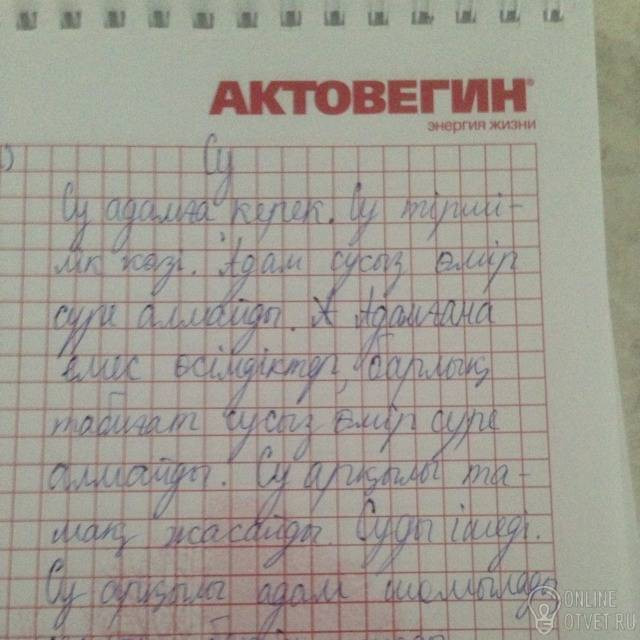 АКТОВЕГИН®
энергия жизни
Су
Су адамға керек. Су тірші-
лік көзі. Адам сусыз өмір
сүре алмайды. Адамғана
емес өсімдіктер, барлық
табиғат сусыз өмір сүре
алмайды. Су арқылы та-
мақ жасайды. Суды ішеді.
Су арқылы адам шомылады
ONLINE
OTVET.RU